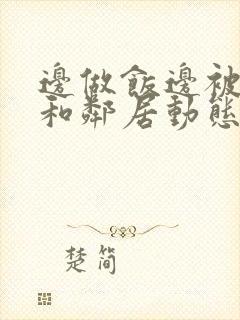 邊做飯邊被
和鄰居動態
楚简